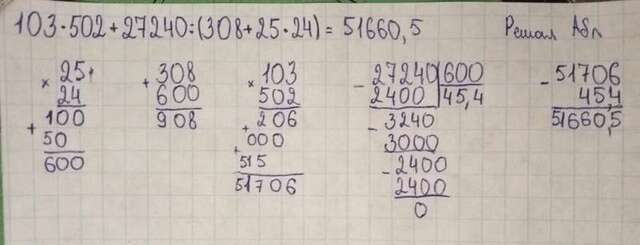 103·502+27240:(308+25·24)=51660,5
Решал
×25
24
+100
50
600
+308
600
908
×103
502
+206
+000
515
51706
-27240|600
2400|45,4
-3240
3000
-2400
2400
0
-51706
45,4
51660,5